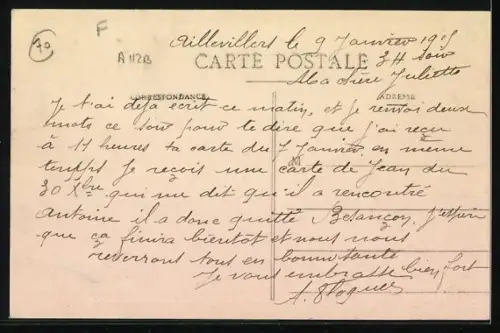 70
F
A112B
Aillevillers le 9 Janvier 1915
3H soir
CARTE POSTALE
Ma chère Juliette
CORRESPONDANCE
ADRESSE
Je t'ai déjà écrit ce matin, et je renvoi deux
mots ce soir pour te dire que j'ai reçu
à 11 heures ta carte du 7 Janvier, en même
temps Je reçois une carte de Jean du
30 Xbre qui me dit qu'il a rencontré
Antoine il a donc quitté Besançon, J'espère
que ça finira bientôt et nous nous
reverrons tous en bonne santé
Je vous embrasse bien fort
A.